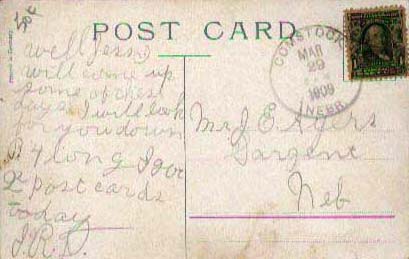 50¢
POST CARD
Well Jessy
will come up
some of these
days I will look
for you down
long I got
2 post cards
today
J.R.D.
COMSTOCK
MAR
29
1909
NEBR.
1
Mr J E
Sargent
Neb